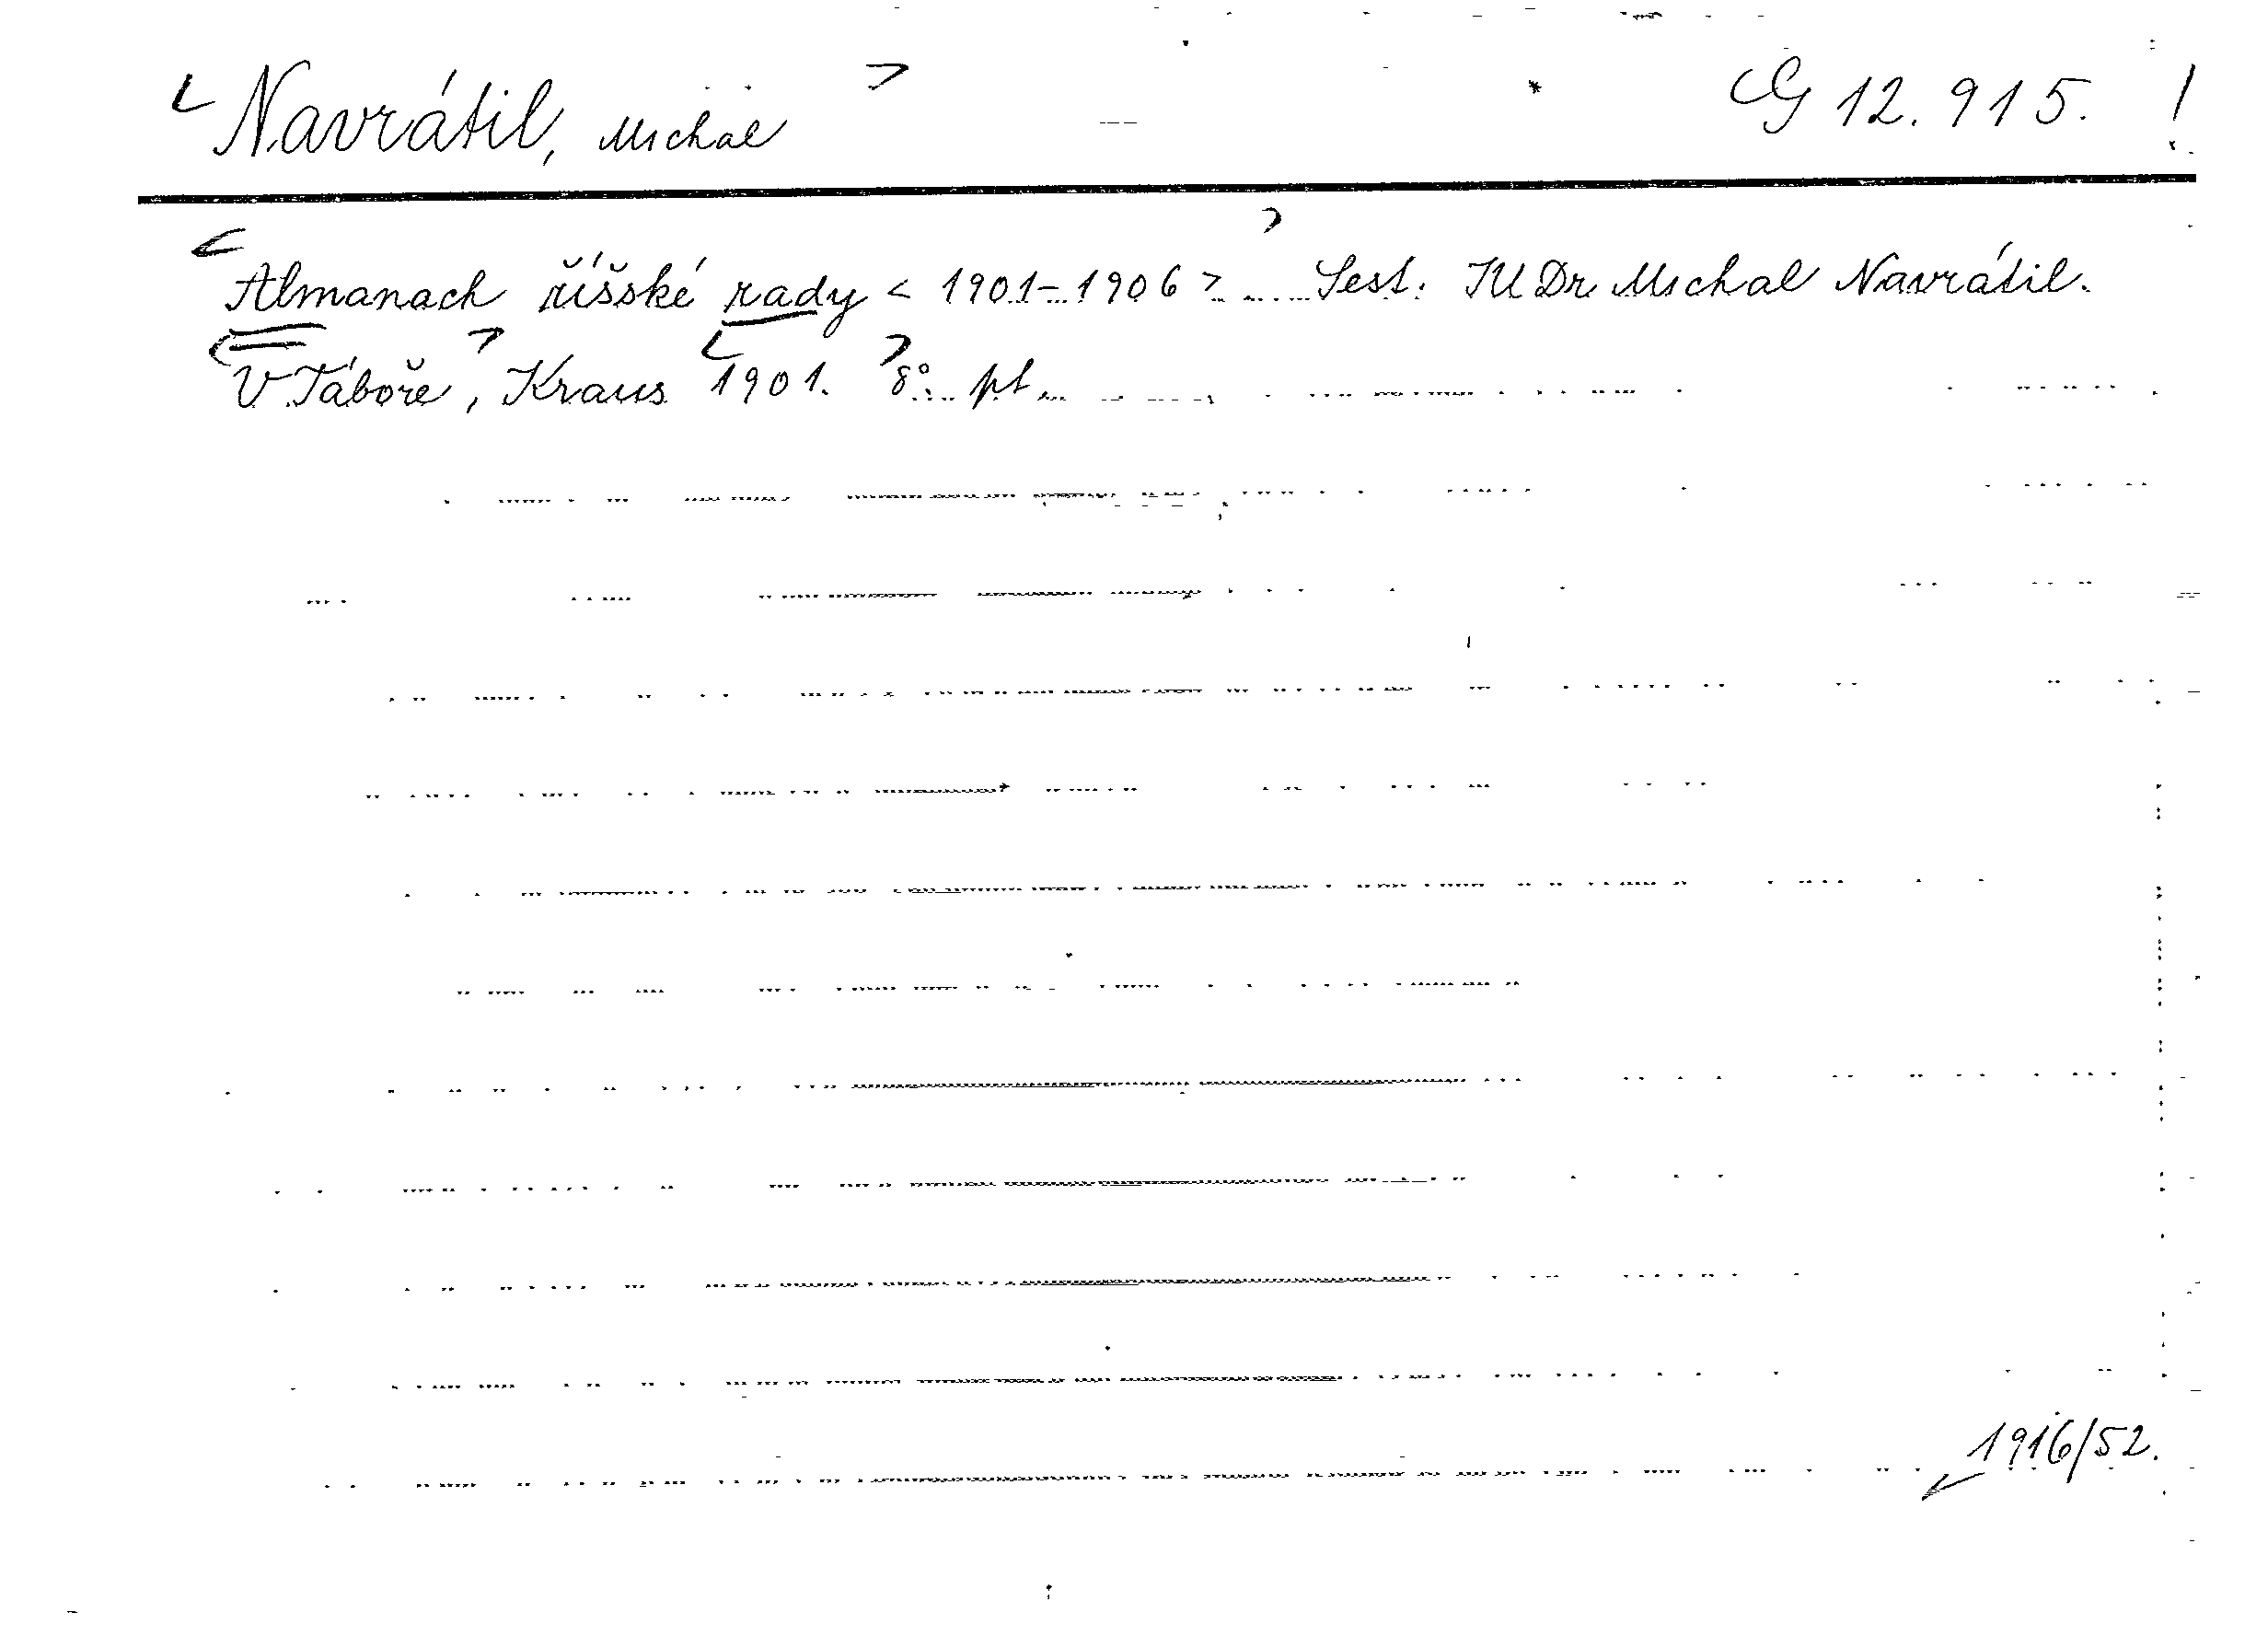 Navrátil, Michal G 12.915. !
Almanach říšské rady < 1901-1906 > Sest. JUDr Michal Navrátil.
V Táboře, Kraus 1901. 8°. pt.
1916/52.